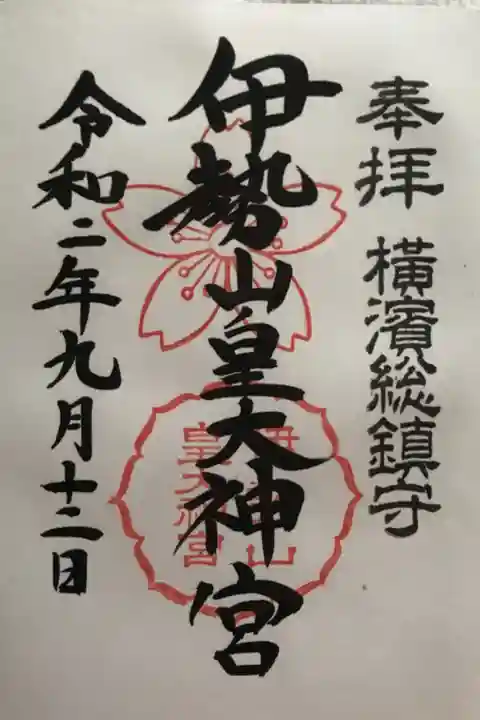 奉拝 横濱総鎮守
伊勢山皇大神宮
令和二年九月十二日
伊勢山
皇大神宮